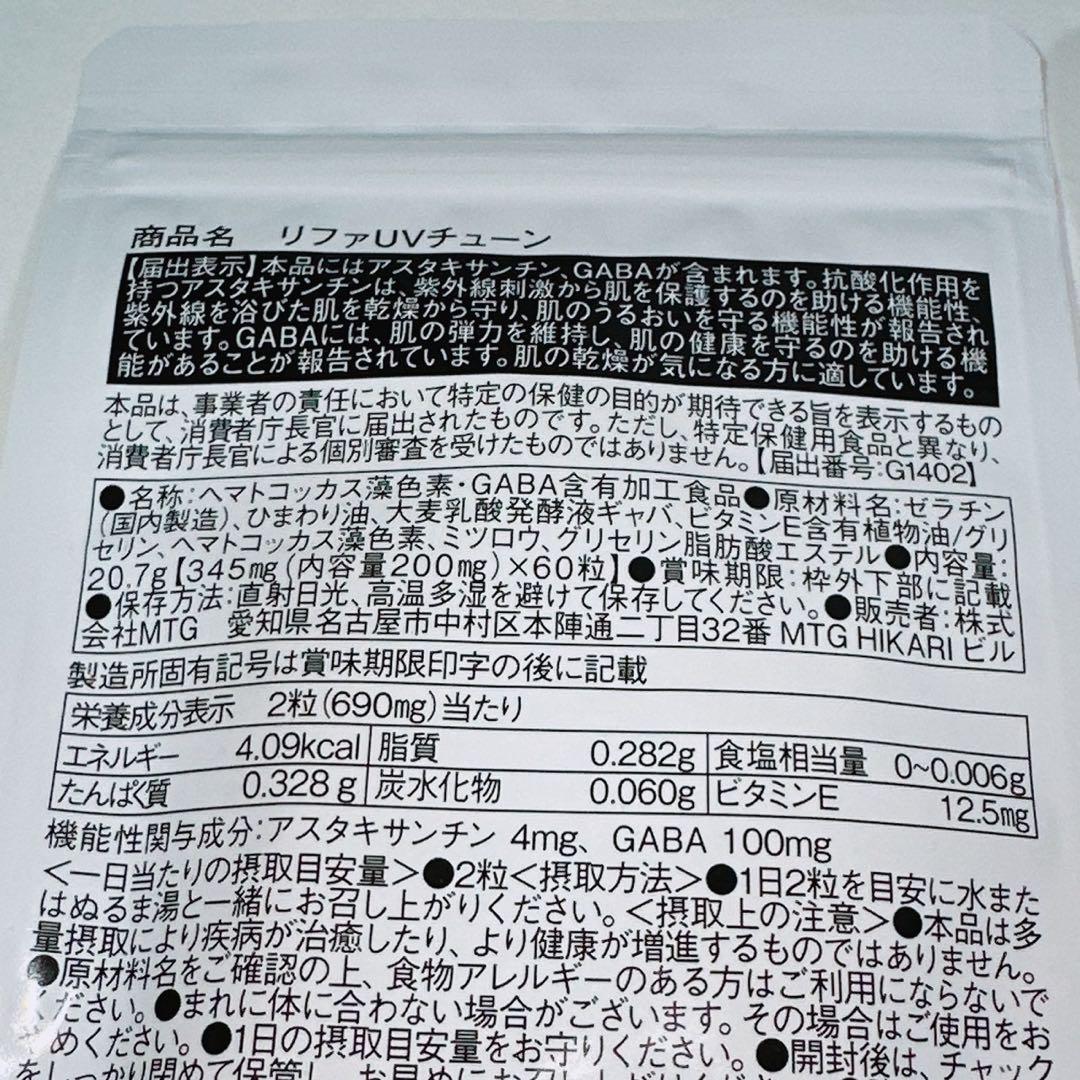 商品名 リファUVチューン
【届出表示】本品にはアスタキサンチン、GABAが含まれます。抗酸化作用を
持つアスタキサンチンは、紫外線刺激から肌を保護するのを助ける機能性、
紫外線を浴びた肌を乾燥から守り、肌のうるおいを守る機能性が報告され
ています。GABAには、肌の弾力を維持し、肌の健康を守るのを助ける機
能があることが報告されています。肌の乾燥が気になる方に適しています。
本品は、事業者の責任において特定の保健の目的が期待できる旨を表示するもの
として、消費者庁長官に届出されたものです。ただし、特定保健用食品と異なり、
消費者庁長官による個別審査を受けたものではありません。【届出番号:G1402】
●名称:ヘマトコッカス藻色素・GABA含有加工食品●原材料名:ゼラチン
(国内製造)、ひまわり油、大麦乳酸発酵液ギャバ、ビタミンE含有植物油/グリ
セリン、ヘマトコッカス藻色素、ミツロウ、グリセリン脂肪酸エステル●内容量:
20.7g【345mg(内容量200mg)×60粒】●賞味期限:枠外下部に記載
●保存方法:直射日光、高温多湿を避けて保存してください。●販売者:株式
会社MTG 愛知県名古屋市中村区本陣通二丁目32番 MTG HIKARI ビル
製造所固有記号は賞味期限印字の後に記載
栄養成分表示 2粒(690mg)当たり
エネルギー 4.09kcal 脂質 0.282g 食塩相当量 0~0.006g
たんぱく質 0.328g 炭水化物 0.060g ビタミンE 12.5mg
機能性関与成分:アスタキサンチン 4mg、GABA 100mg
<一日当たりの摂取目安量>●2粒<摂取方法>●1日2粒を目安に水また
はぬるま湯と一緒にお召し上がりください。<摂取上の注意>●本品は多
量摂取により疾病が治癒したり、より健康が増進するものではありません。
●原材料名をご確認の上、食物アレルギーのある方はご利用にならないで
ください。●まれに体に合わない場合がございます。その場合はご使用をお
やめください。●1日の摂取目安量をお守りください。●開封後は、チャック
をしっかり閉めて保管し、お早めにお召し上がりください